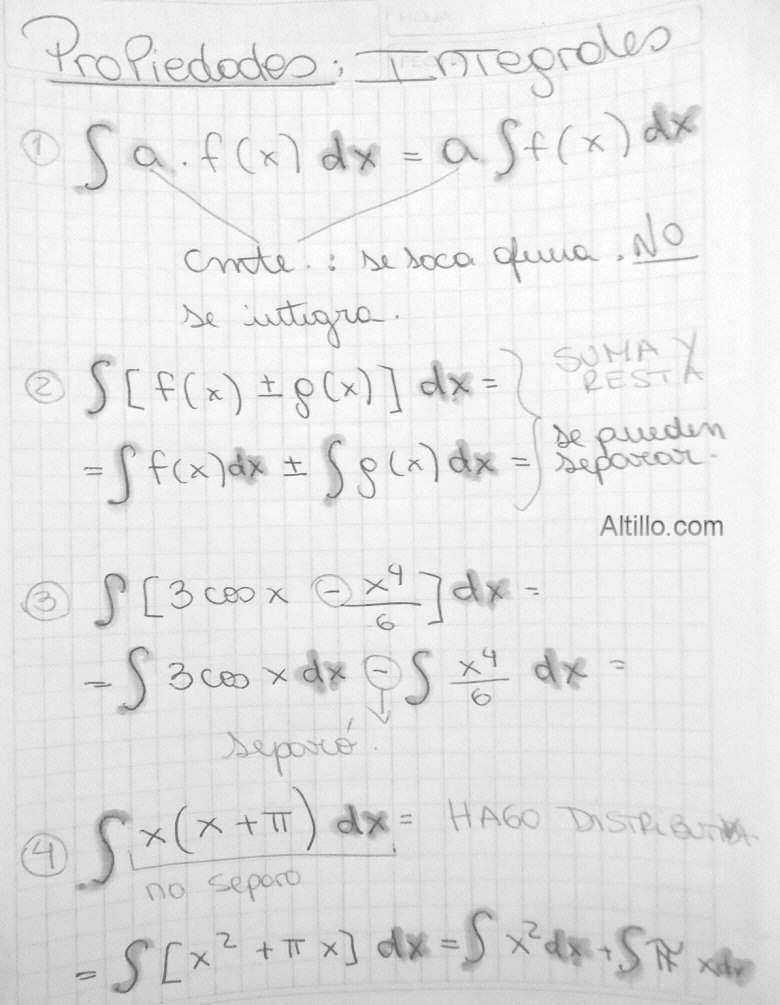 Propiedades: Integrales
① ∫ a . f(x) dx = a ∫ f(x) dx
cnste. : se saca afuera . NO
se integra.
② ∫ [f(x) ± g(x)] dx =
SUMA Y
RESTA
= ∫ f(x) dx ± ∫ g(x) dx =
se pueden
separar.
Altillo.com
③ ∫ [3 cos x - x⁴/6] dx =
= ∫ 3 cos x dx - ∫ x⁴/6 dx =
separó.
④ ∫ x(x + π) dx = HAGO DISTRIBUTIVA
no separo
= ∫ [x² + π x] dx = ∫ x² dx + ∫ π x dx